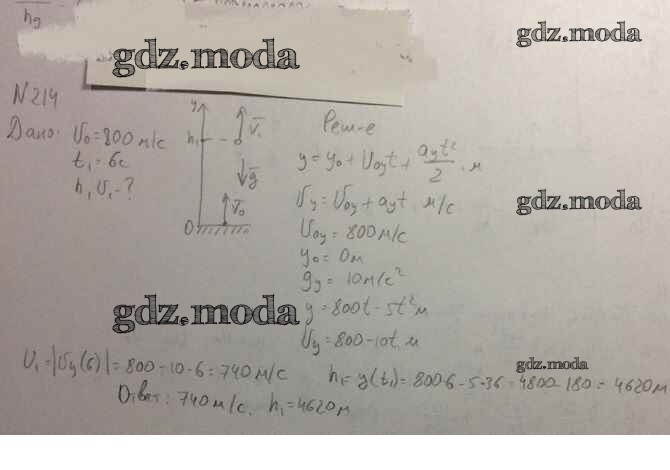 hg
gdz.moda
gdz.moda
N 214
Дано:
V₀ = 800 м/с
t₁ = 6с
h₁ V₁ - ?
y
h₁
V₁
g
V₀
0
Реш-е
y = y₀ + V₀yt + ayt²/2, м
Vy = V₀y + ayt, м/с
gdz.moda
V₀y = 800 м/с
y₀ = 0 м
gy = 10 м/с²
y = 800t - 5t² м
gdz.moda
Vy = 800 - 10t м
gdz.moda
V₁ = |Vy(6)| = 800 - 10 · 6 = 740 м/с
h₁ = y(t₁) = 800·6 - 5·36 = 4800 - 180 = 4620 м
Ответ: 740 м/с, h₁ = 4620 м